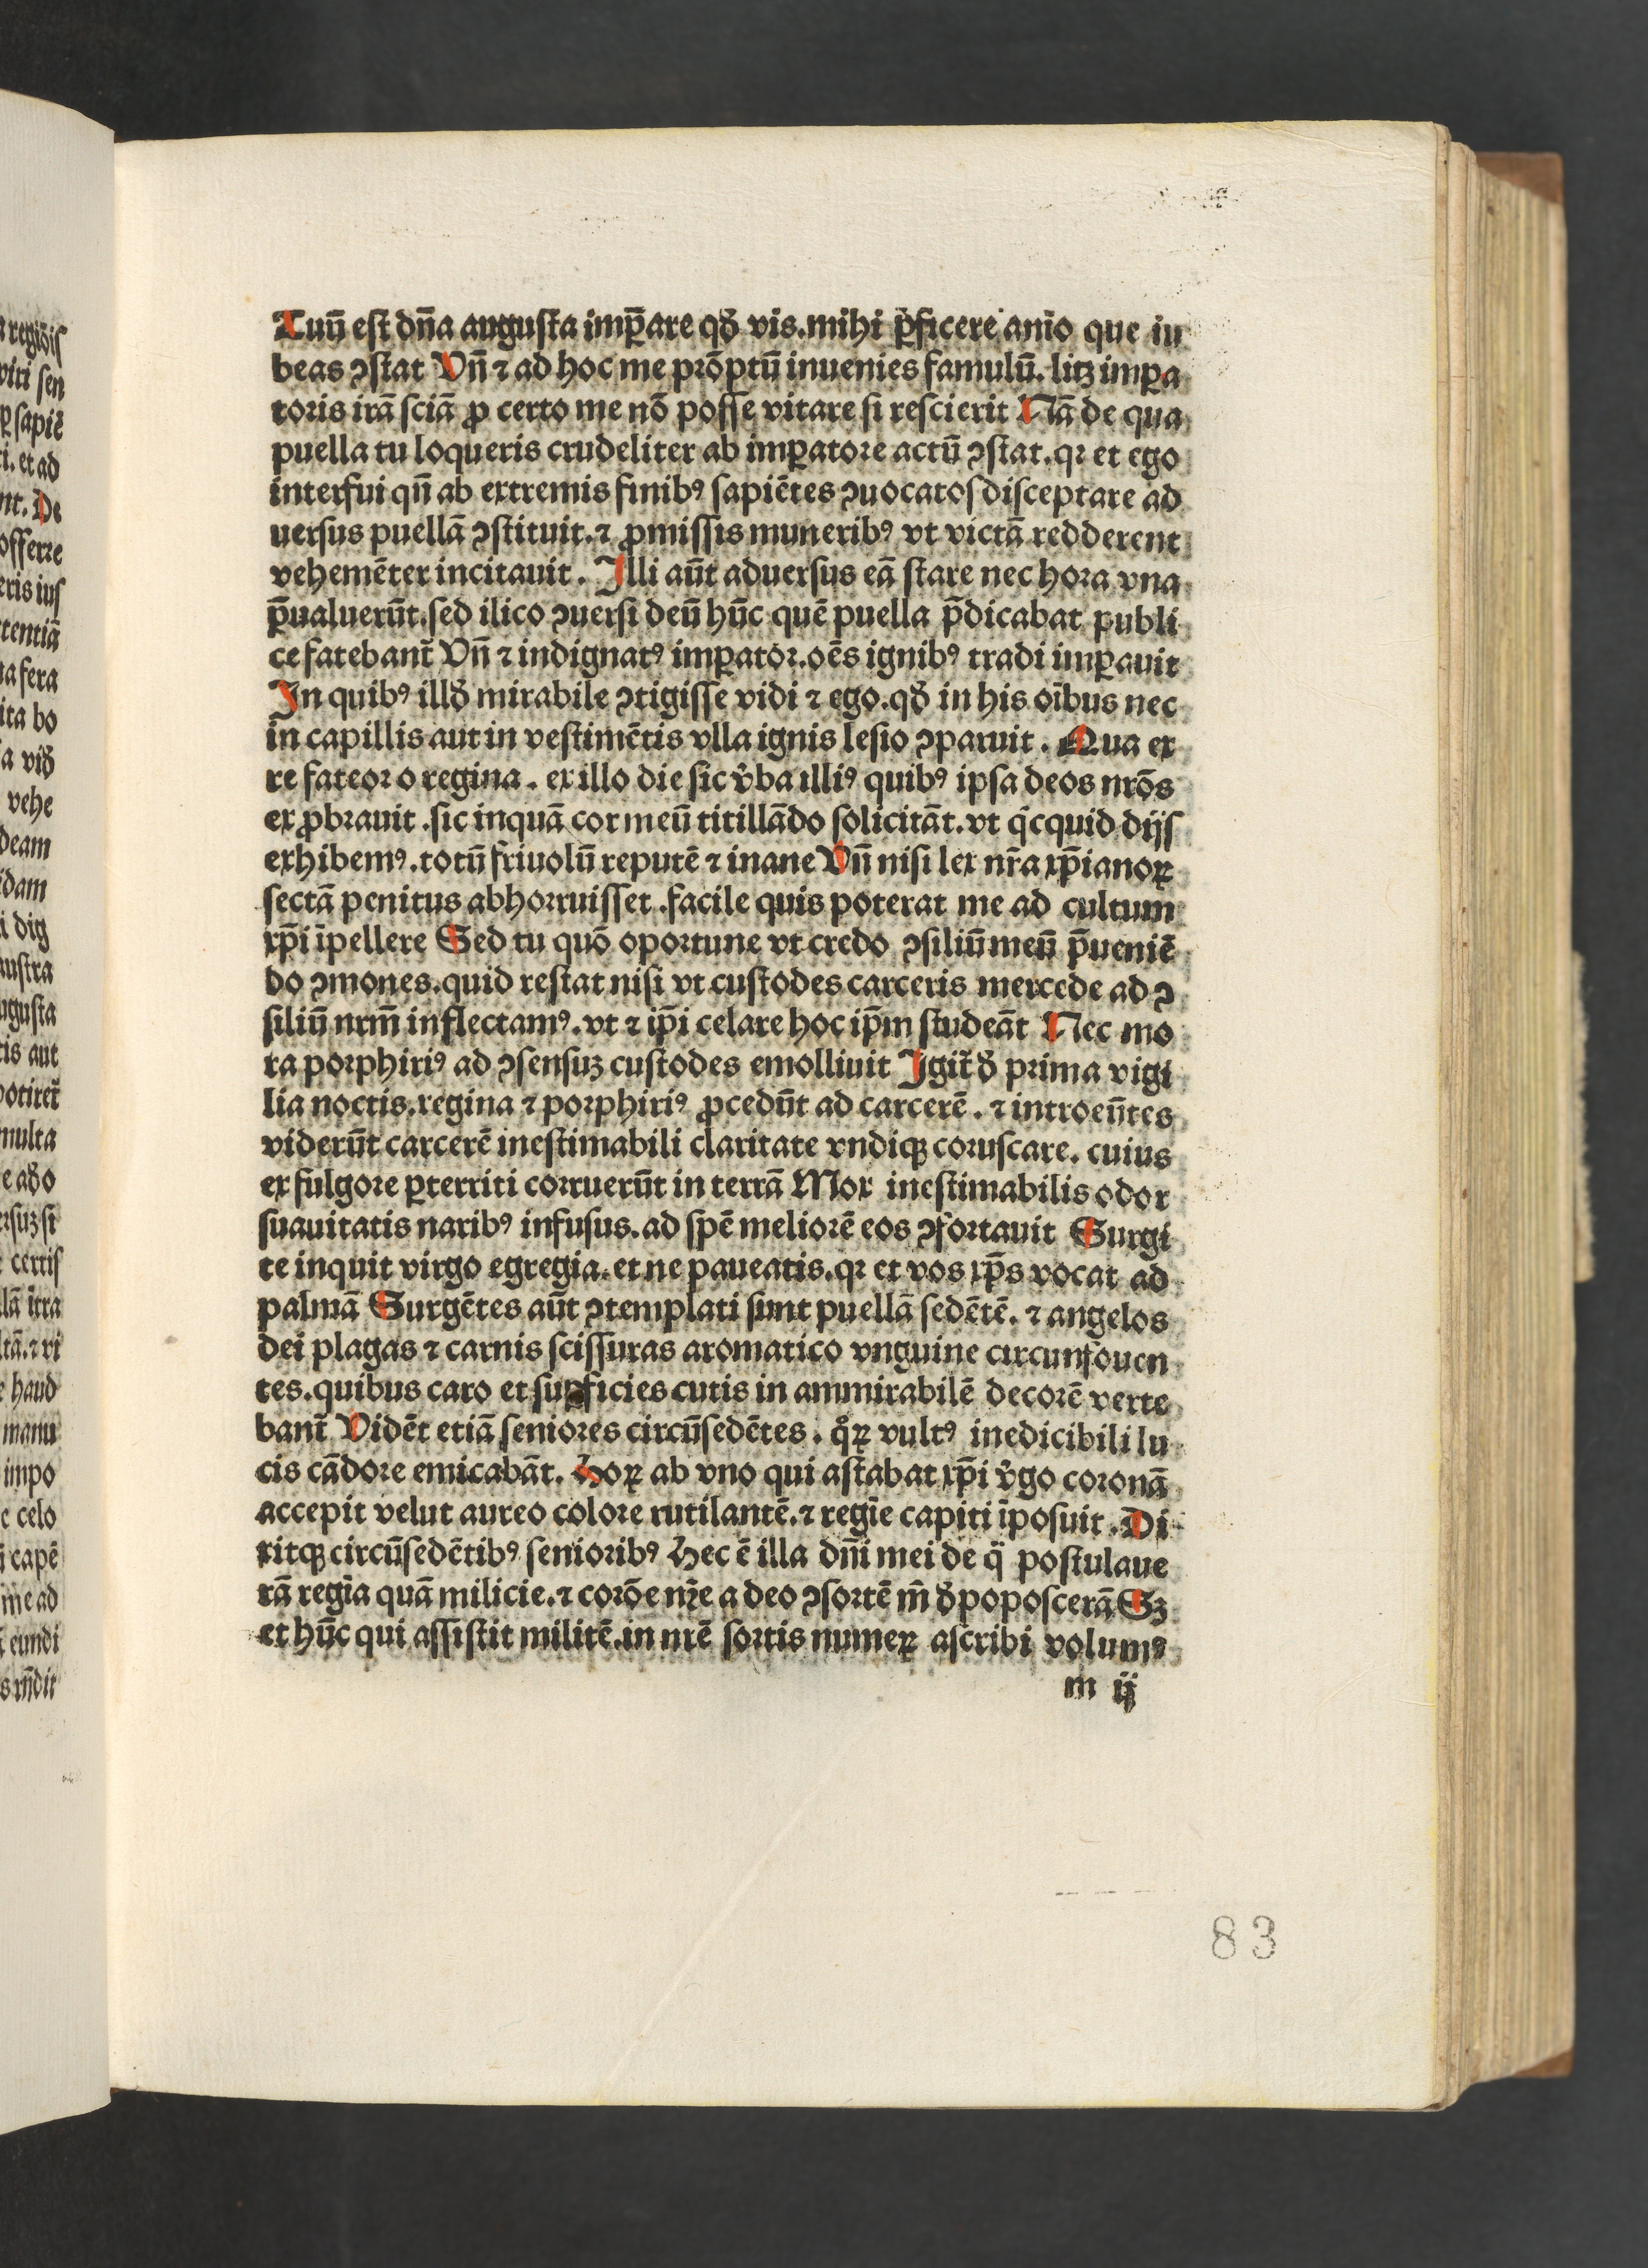 Tuū est dn̄a augusta imꝑare qđ vis.mihi ꝑficere anīo que iu
beas ↄstat Vn̄ ⁊ ad hoc me prōptū inuenies famulū. litꝫ imꝑa
toris irā sciā ꝓ certo me nō posse vitare si rescierit Nā de qua
puella tu loqueris crudeliter ab imꝑatore actū ↄstat.qꝛ et ego
interfui qn̄ ab extremis finibꝰ sapiētes ↄuocatos disceptare ad
uersus puellā ↄstituit.⁊ ꝓmissis muneribꝰ vt victā redderent
vehemēter incitauit. Illi aūt aduersus eā stare nec hora vna
p̄ualuerūt.sed ilico ↄuersi deū hūc quē puella p̄dicabat publi
ce fatebant̄ Vn̄ ⁊ indignatꝰ imꝑator.oēs ignibꝰ tradi imꝑauit
In quibꝰ illđ mirabile ↄtigisse vidi ⁊ ego.qđ in his oībus nec
in capillis aut in vestimētis vlla ignis lesio ↄparuit. Qua ex
re fateor o regina. ex illo die sic v̓ba illiꝰ quibꝰ ipsa deos nrōs
exꝓbrauit.sic inquā cor meū titillādo solicitāt.vt qͥcquid dijs
exhibemꝰ.totū friuolū reputē ⁊ inane Vn̄ nisi lex nr̄a xp̄ianoꝝ
sectā penitus abhorruisset.facile quis poterat me ad cultum
xp̄i īpellere Sed tu quō oportune vt credo ↄsiliū meū p̄ueniē
do ↄmones.quid restat nisi vt custodes carceris mercede ad ↄ
siliū nrm̄ inflectamꝰ.vt ⁊ ip̄i celare hoc ip̄m studeāt Nec mo
ra porphiriꝰ ad ↄsensuꝫ custodes emolliuit Igit̄ đ prima vigi
lia noctis.regina ⁊ porphiriꝰ ꝓcedūt ad carcerē. ⁊ introeūtes
viderūt carcerē inestimabili claritate vndiqꝫ coruscare. cuius
ex fulgore ꝑterriti corruerūt in terrā Mox inestimabilis odor
suauitatis naribꝰ infusus.ad spē meliorē eos ↄfortauit Surgi
te inquit virgo egregia.et ne paueatis.qꝛ et vos xp̄s vocat ad
palmā Surgētes aūt ↄtemplati sunt puellā sedētē. ⁊ angelos
dei plagas ⁊ carnis scissuras aromatico vnguine circunfouen
tes.quibus caro et suꝑficies cutis in ammirabilē decorē verte
bant̄ Vidēt etiā seniores circūsedētes. qͦꝝ vultꝰ inedicibili lu
cis cādore emicabāt. Hoꝝ ab vno qui astabat xp̄i v̓go coronā
accepit velut aureo colore rutilantē.⁊ regīe capiti īposuit. Di
xitqꝫ circūsedētibꝰ senioribꝰ Hec ē illa dn̄i mei de qͣ postulaue
rā regīa quā milicie.⁊ corōe mēe a deo ↄsortē m̄ đpoposcerā Sꝫ
et hūc qui assistit militē.in nrē sortis numeꝝ ascribi volumꝰ
m ij
83